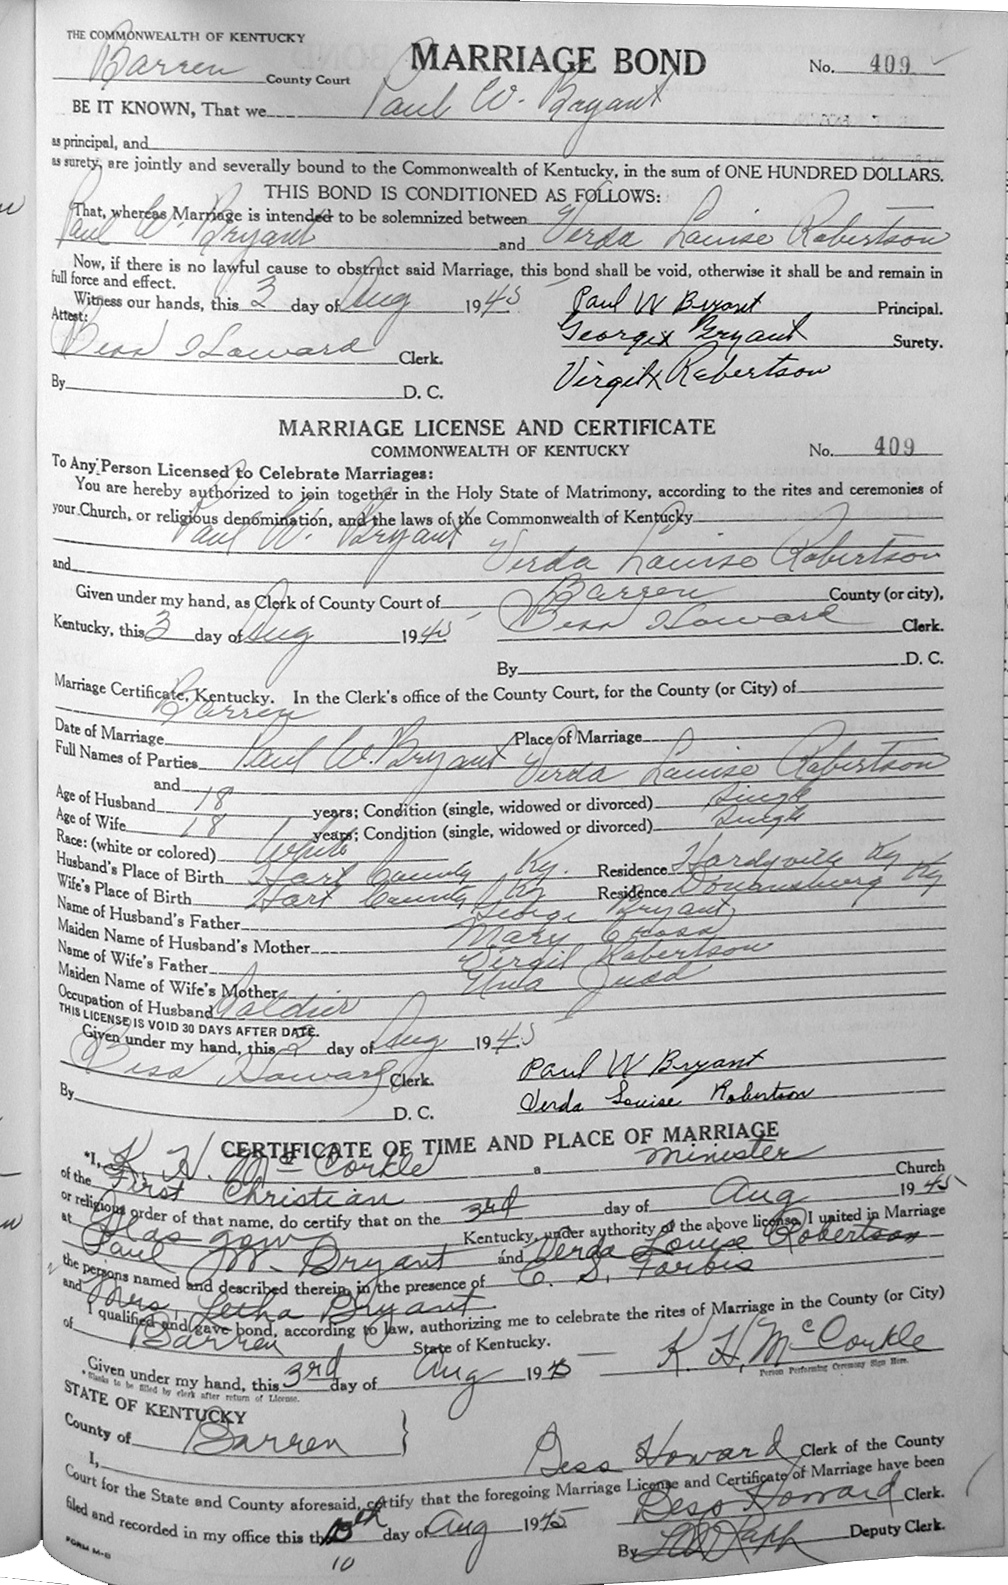 THE COMMONWEALTH OF KENTUCKY
Barren County Court MARRIAGE BOND No. 409
BE IT KNOWN, That we Paul W. Bryant
as principal, and
as surety, are jointly and severally bound to the Commonwealth of Kentucky, in the sum of ONE HUNDRED DOLLARS.
THIS BOND IS CONDITIONED AS FOLLOWS:
That, whereas Marriage is intended to be solemnized between
Paul W. Bryant and Verda Louise Robertson
Now, if there is no lawful cause to obstruct said Marriage, this bond shall be void, otherwise it shall be and remain in
full force and effect.
Witness our hands, this 3 day of Aug 1945 Paul W Bryant Principal.
Attest: George x Bryant Surety.
Bess Howard Clerk.
Virgil x Robertson
By D. C.
MARRIAGE LICENSE AND CERTIFICATE
COMMONWEALTH OF KENTUCKY No. 409
To Any Person Licensed to Celebrate Marriages:
You are hereby authorized to join together in the Holy State of Matrimony, according to the rites and ceremonies of
your Church, or religious denomination, and the laws of the Commonwealth of Kentucky
Paul W. Bryant
and Verda Louise Robertson
Given under my hand, as Clerk of County Court of Barren County (or city),
Kentucky, this 3 day of Aug 1945 Bess Howard Clerk.
By D. C.
Marriage Certificate, Kentucky. In the Clerk's office of the County Court, for the County (or City) of
Barren
Date of Marriage Place of Marriage
Full Names of Parties Paul W. Bryant Verda Louise Robertson
and
Age of Husband 18 years; Condition (single, widowed or divorced) Single
Age of Wife 18 years; Condition (single, widowed or divorced) Single
Race: (white or colored) White
Husband's Place of Birth Hart County Ky. Residence Hardyville Ky
Wife's Place of Birth Hart County Ky Residence Donansburg Ky
Name of Husband's Father George Bryant
Maiden Name of Husband's Mother Mary Cross
Name of Wife's Father Virgil Robertson
Maiden Name of Wife's Mother Judd
Occupation of Husband Soldier
THIS LICENSE IS VOID 30 DAYS AFTER DATE.
Given under my hand, this day of Aug 1945
Bess Howard Clerk. Paul W Bryant
By D. C. Verda Louise Robertson
CERTIFICATE OF TIME AND PLACE OF MARRIAGE
*I, K. H. McCorkle a Minister
of the First Christian Church
or religious order of that name, do certify that on the 3rd day of Aug 1945
at Glasgow Kentucky, under authority of the above license, I united in Marriage
Paul W. Bryant and Verda Louise Robertson
the persons named and described therein, in the presence of C. S. Forbis
and Mrs. Letha Bryant.
I qualified and gave bond, according to law, authorizing me to celebrate the rites of Marriage in the County (or City)
of Barren State of Kentucky.
Given under my hand, this 3rd day of Aug 1945 K. H. McCorkle
Person Performing Ceremony Sign Here.
*Blanks to be filled by clerk after return of License.
STATE OF KENTUCKY
County of Barren }
I, Bess Howard Clerk of the County
Court for the State and County aforesaid, certify that the foregoing Marriage License and Certificate of Marriage have been
filed and recorded in my office this the day of Aug 1945 Bess Howard Clerk.
10 By Deputy Clerk.
FORM M-8